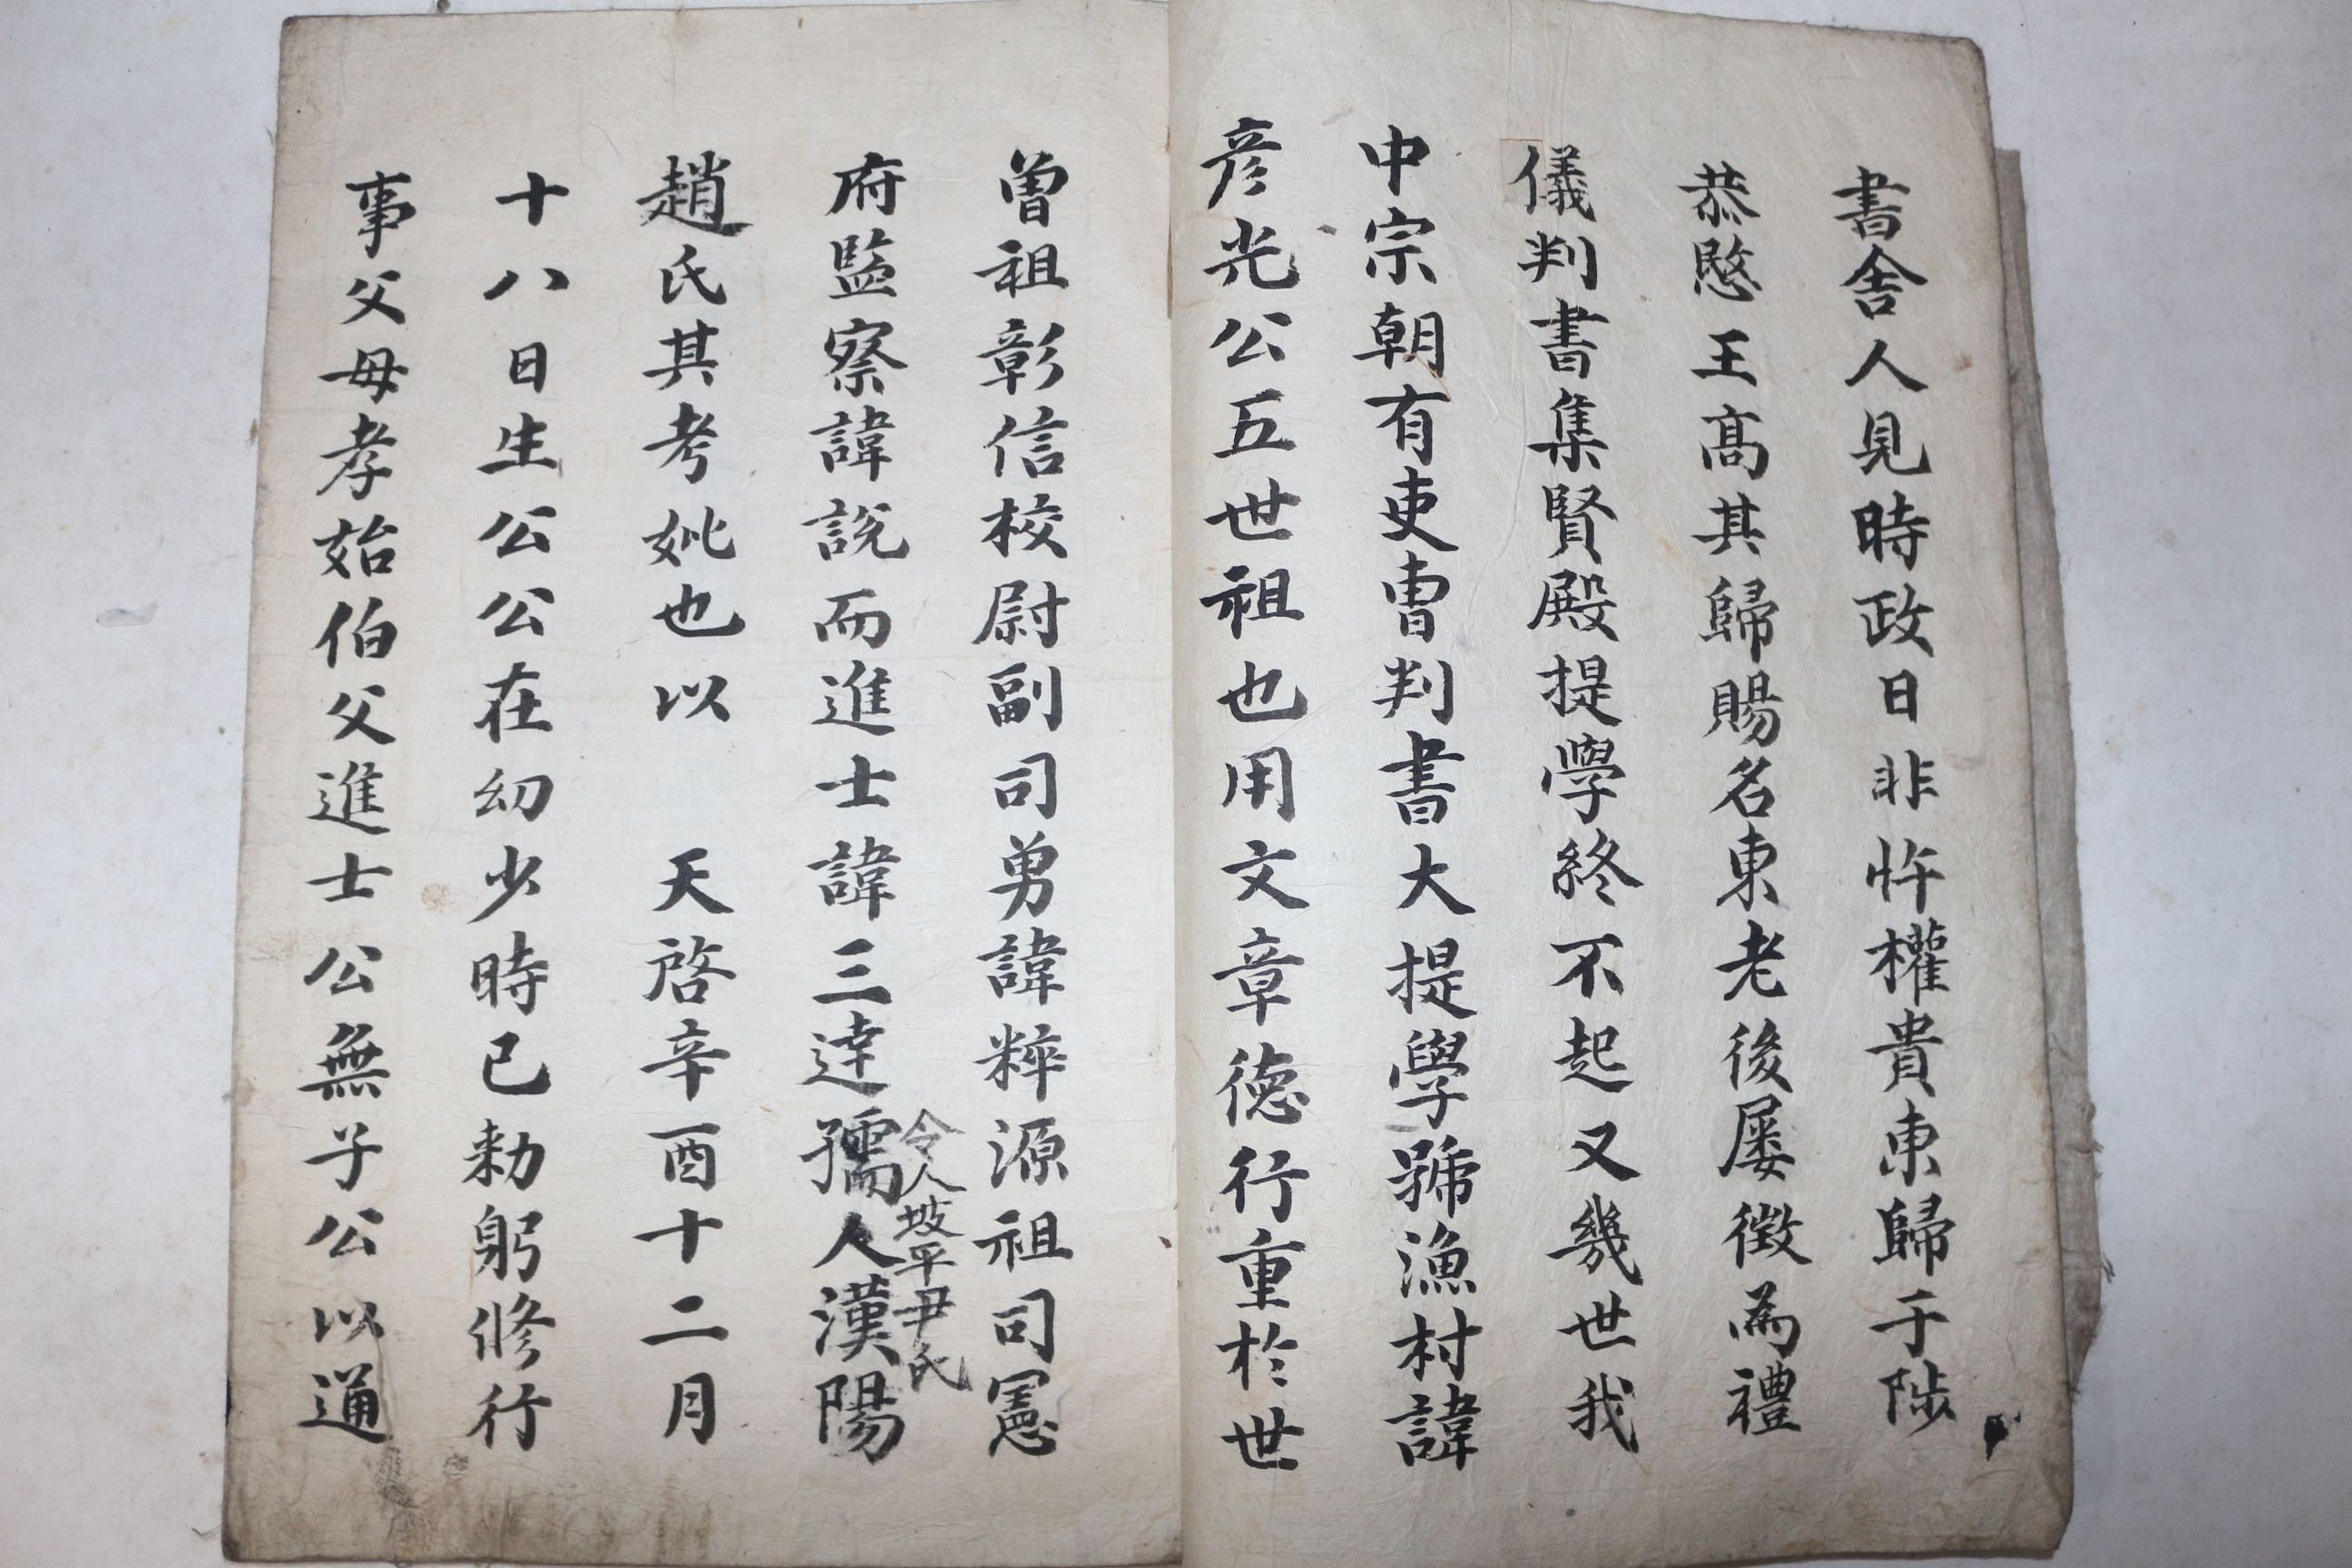 書舍人見時政日非忤權貴東歸于陟
恭愍王高其歸賜名東老後屢徵爲禮
儀判書集賢殿提學終不起又幾世我
中宗朝有吏曺判書大提學號漁村諱
彦光公五世祖也用文章德行重於世
曾祖彰信校尉副司勇諱粹源祖司憲
府監察諱說而進士諱三達孺人漢陽
令人坡平尹氏
趙氏其考妣也以 天啓辛酉十二月
十八日生公公在幼少時已勅躬修行
事父母孝始伯父進士公無子公以通